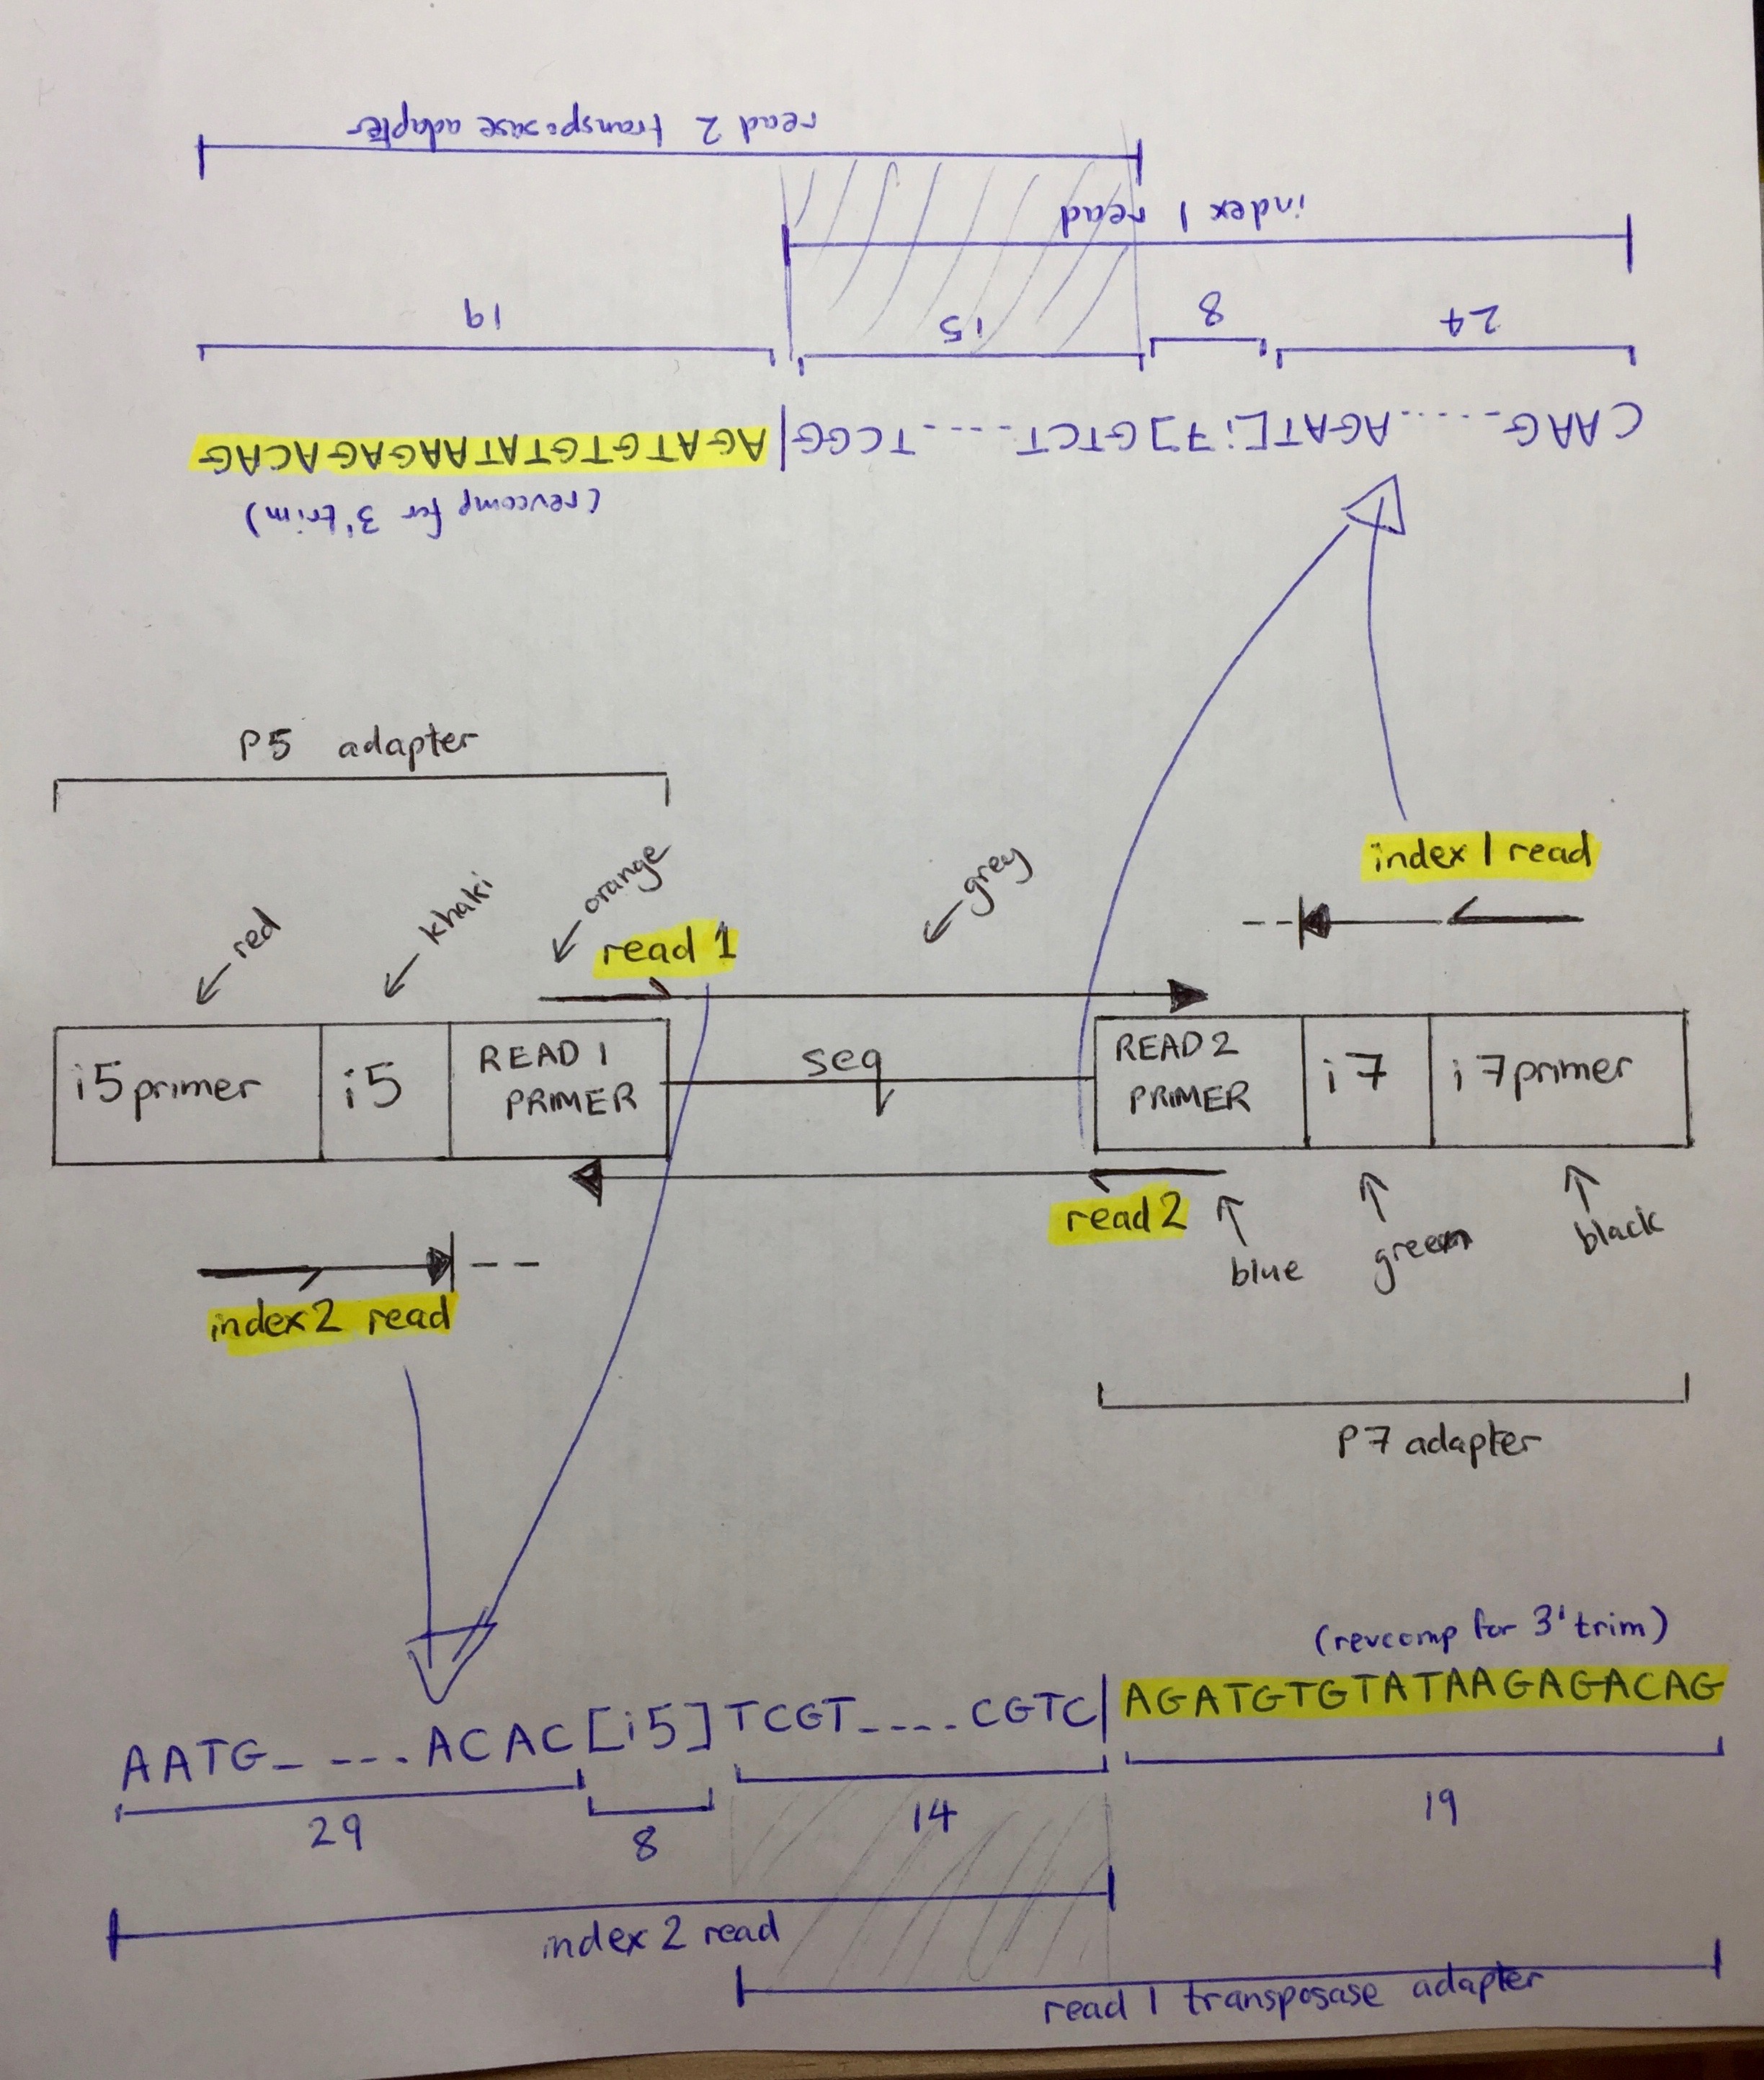 read 2 transposase adapter
index 1 read
19
15
8
24
CAAG-.....AGAT[i7]GTCT....TCGG|AGATGTGTATAAGAGACAG
(revcomp for 3'trim)
P5 adapter
red
khaki
orange
grey
index 1 read
read 1
i5primer
i5
READ 1
PRIMER
seq
READ 2
PRIMER
i7
i7primer
read2
blue
green
black
index2 read
P7 adapter
(revcomp for 3'trim)
AATG_ ---.ACAC[i5]TCGT_...CGTC|AGATGTGTATAAGAGACAG
29
8
14
19
index 2 read
read 1 transposase adapter